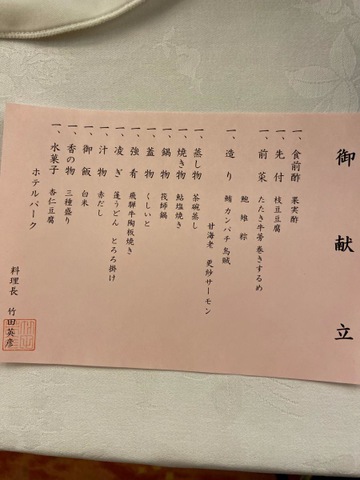 御献立
一、食前酢 果実酢
一、先付 枝豆豆腐
一、前菜 たたき牛蒡 巻きするめ
鮑 雉 粽
一、造り 鯛 カンパチ 烏賊
甘海老 更紗サーモン
一、蒸し物 茶碗蒸し
一、焼き物 鮎塩焼き
一、鍋物 筏師鍋
一、蓋物 くしいと
一、強肴 飛騨牛陶板焼き
一、凌ぎ 蓬うどん とろろ掛け
一、汁物 赤だし
一、御飯 白米
一、香の物 三種盛り
一、水菓子 杏仁豆腐
ホテルパーク
料理長 竹田英彦